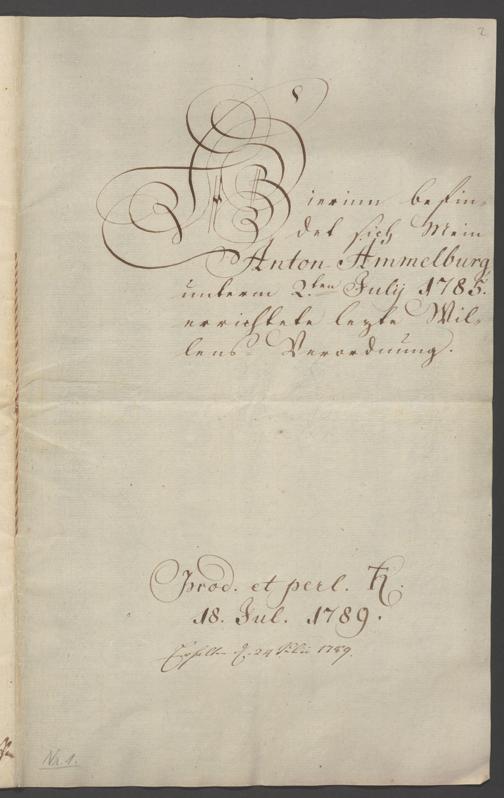 2
Hierinn befin-
det sich Mein
Anton Ammelburg
unterm 2.ten July 1785.
errichtete lezte Wil-
lens-Verordnung.
Prod. et perl. R.
18. Jul. 1789.
Erhalten d. 24 Julii 1789.
Nr. 1.